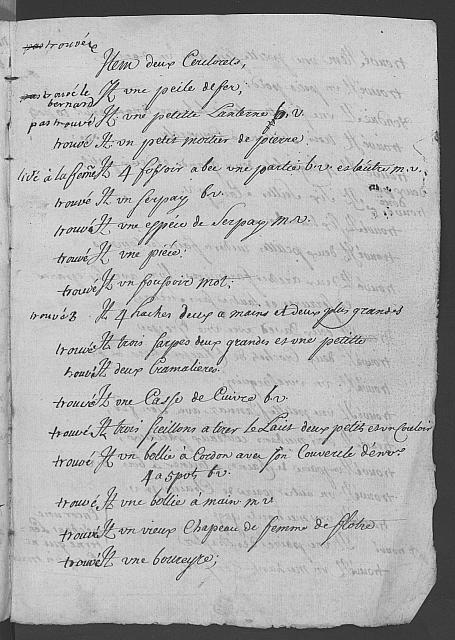 pas trouvéz
Item deux
pas trouvé le It une pelle de fer;
bernard
pas trouvé It une petitte Lanterne b.v.
trouvé It un petit mortier de pierre
livé à la femme It 4 fossoir avec une partie b.v. et lautre m.v.
trouvé It un serpay b.v.
trouvé It une espéce de Serpay m.v.
trouvé It une piéce;
trouvé It un foussoir mol;
trouvé 3 It 4 haches deux a mains et deux plus grandes
trouvé It trois sarpes deux grandes et une petitte
trouvé It deux Cramalieres
trouvé It une Casse de Cuivre b.v.
trouvé It trois seillons a tirer le Lait deux petits et un Couloir
trouvé It un bollie à Cordon avec son Couvercle d'envir.
4 a 5 pots b.v.
trouvé It une bollie à main m.v.
trouvé It un vieux Chapeau de femme de
trouvé It une boureyre;